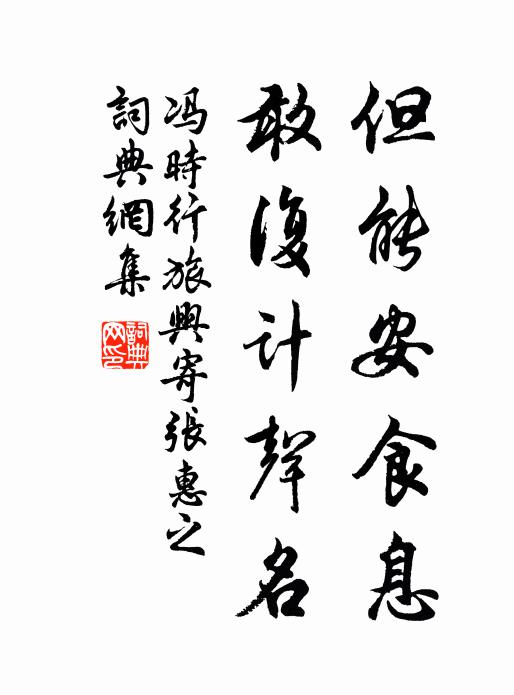 但能安食息
敢復计聲名
冯時行旅興寄張惠之
詞典網集
詞典网印